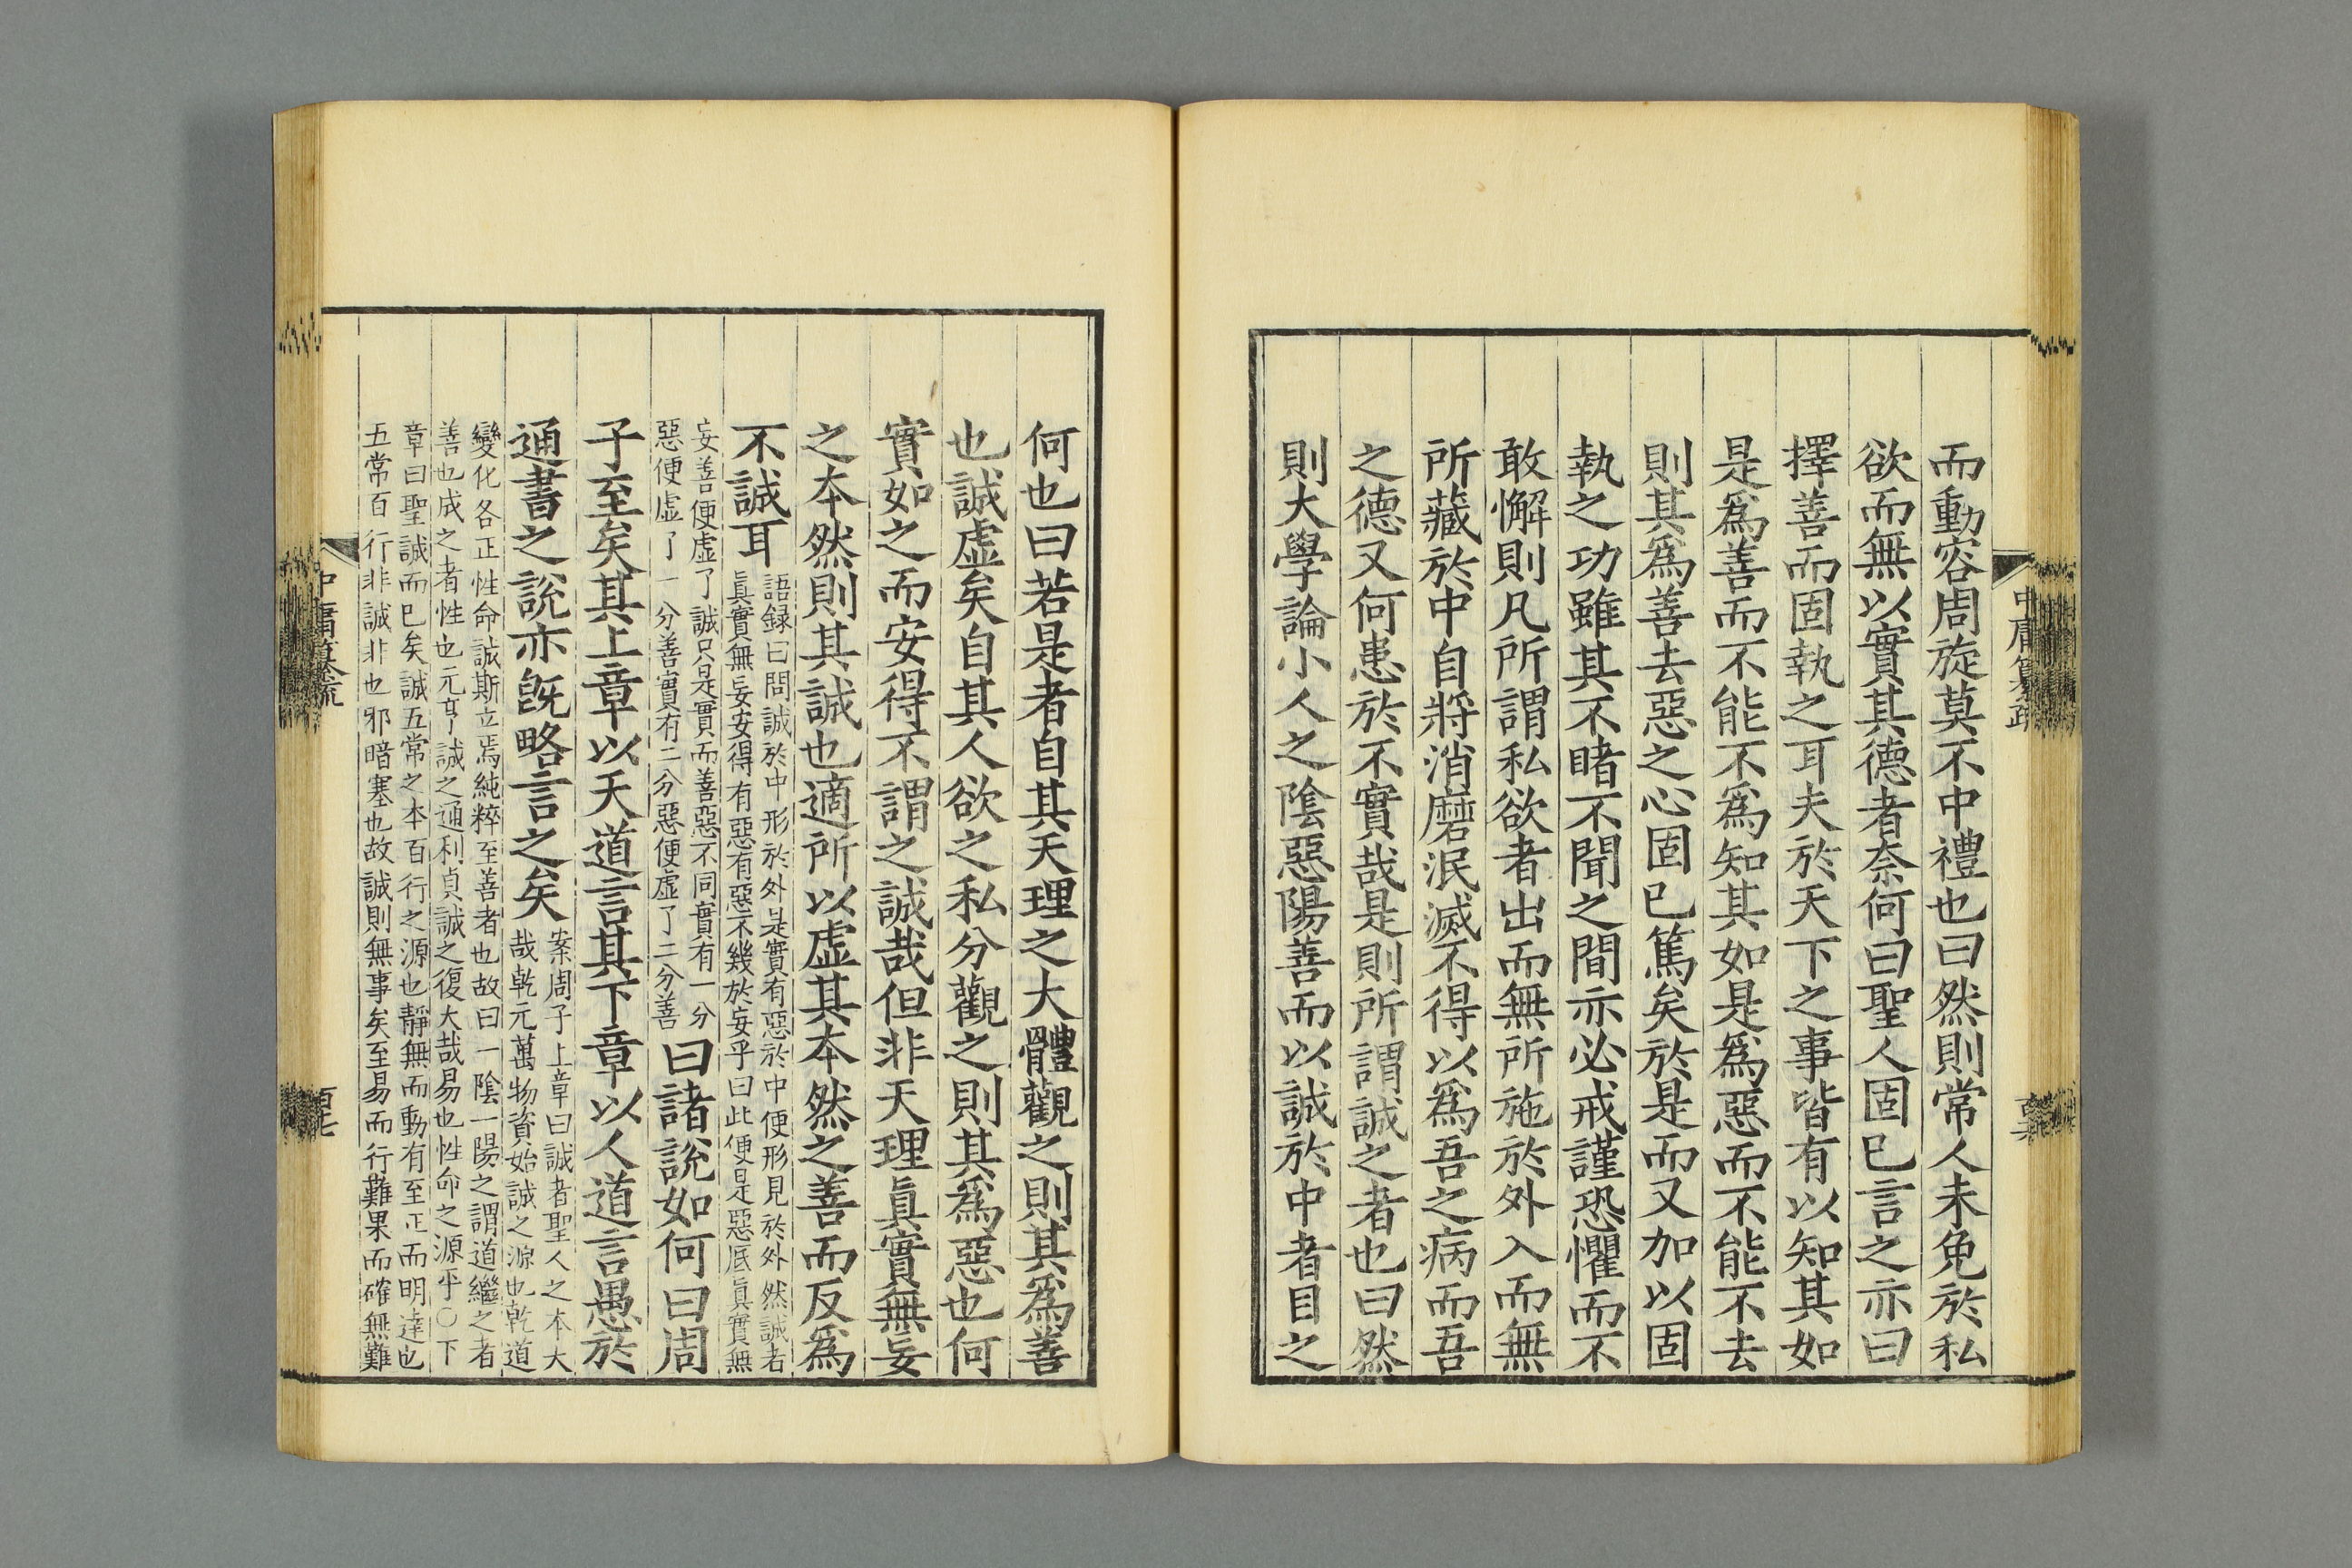 而動容周旋莫不中禮也曰然則常人未免於私
欲而無以實其德者奈何曰聖人固已言之亦曰
擇善而固執之耳夫於天下之事皆有以知其如
是爲善而不能不爲知其如是爲惡而不能不去
則其爲善去惡之心固已篤矣於是而又加以固
執之功雖其不睹不聞之間亦必戒謹恐懼而不
敢懈則凡所謂私欲者出而無所施於外入而無
所藏於中自將消磨泯滅不得以爲吾之病而吾
之德又何患於不實哉是則所謂誠之者也曰然
則大學論小人之陰惡陽善而以誠於中者目之
中庸纂疏
何也曰若是者自其天理之大體觀之則其爲善
也誠虛矣自其人欲之私分觀之則其爲惡也何
實如之而安得不謂之誠哉但非天理眞實無妄
之本然則其誠也適所以虛其本然之善而反爲
不誠耳
語録曰問誠於中形於外是實有惡於中便形見於外然誠者
眞實無妄安得有惡有惡不幾於妄乎曰此便是惡底眞實無
妄善便虛了誠只是實而善惡不同實有一分
惡便虛了一分善實有二分惡便虛了二分善
曰諸說如何曰周
子至矣其上章以天道言其下章以人道言愚於
通書之說亦旣略言之矣
案周子上章曰誠者聖人之本大
哉乾元萬物資始誠之源也乾道
變化各正性命誠斯立焉純粹至善者也故曰一陰一陽之謂道繼之者
善也成之者性也元亨誠之通利貞誠之復大哉易也性命之源乎○下
章曰聖誠而已矣誠五常之本百行之源也靜無而動有至正而明達也
五常百行非誠非也邪暗塞也故誠則無事矣至易而行難果而確無難
中庸纂疏